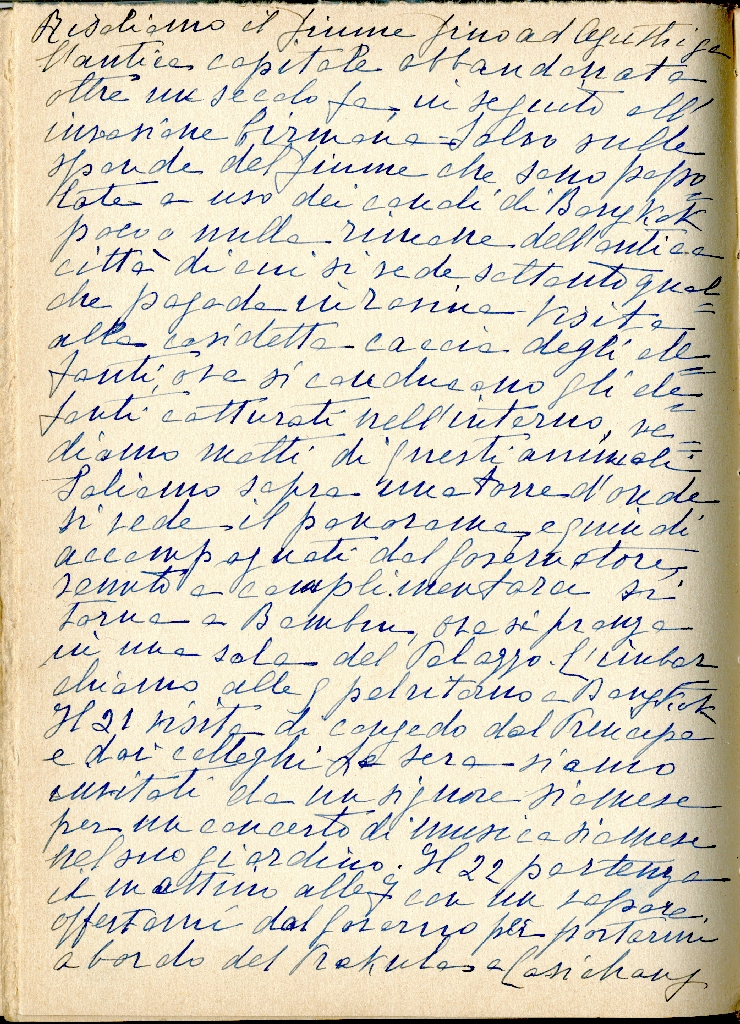 Risaliamo il fiume fino ad Aguthiga
l'antica capitale abbandonata
oltre un secolo fa, in seguito all'
invasione birmana. Salvo sulle
sponde del fiume che sono popo=
late a uso dei canali di Bangkok
poco o nulla rimane dell'antica
città di cui si vede soltanto qual=
che pagoda in rovina. Visita
alla cosidetta caccia degli ele=
fanti, ove si conducono gli ele=
fanti catturati nell'interno, ve=
diamo molti di questi animali.
Saliamo sopra una torre d'onde
si vede il panorama, e quindi
accompagnati dal governatore,
venuto a complimentarci si
torna a Bambin, ove si pranza
in una sala del Palazzo. C'imbar
chiamo alle 9 pel ritorno a Bangkok
Il 21 visita di congedo dal Principe
e dai colleghi. La sera siamo
invitati da un signore siamese
per un concerto di musica siamese
nel suo giardino. Il 22 partenza
il mattino alle 9 con un vapore,
offertomi dal governo per portarmi
a bordo del Trakula a Casichang